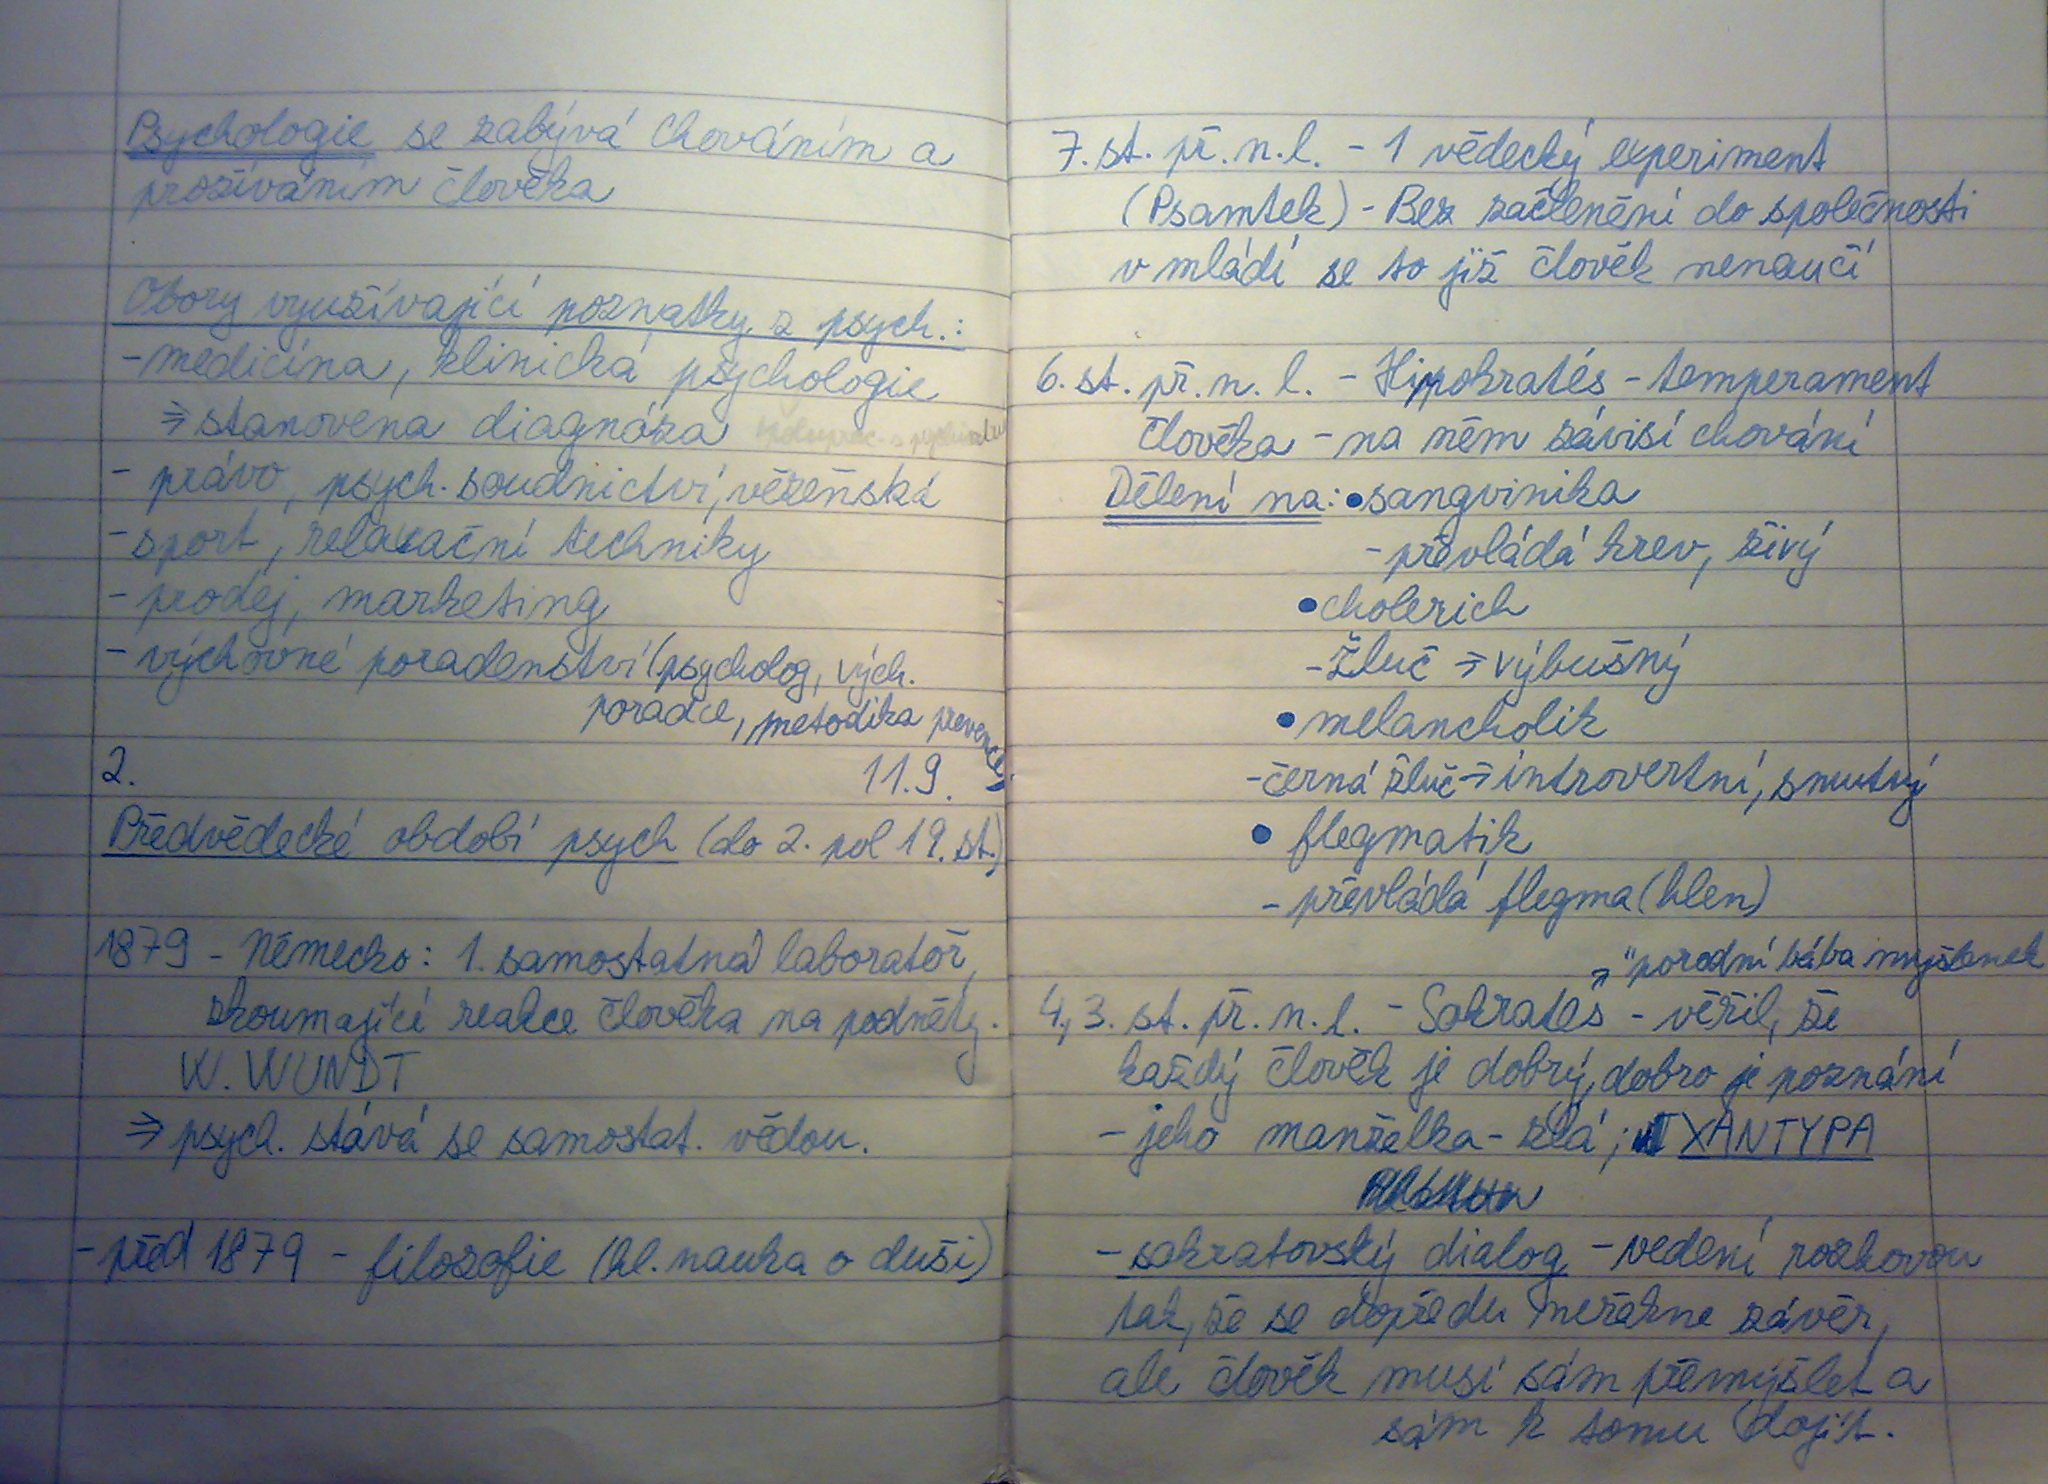 Psychologie se zabývá chováním a
prožíváním člověka
Obory využívající poznatky z psych.:
- medicína, klinická psychologie
⇒ stanovena diagnóza
- právo, psych. soudnictví, vězeňská
- sport, relaxační techniky
- prodej, marketing
- výchovné poradenství (psycholog, vých.
poradce, metodika prevence)
2. 11.9.
Předvědecké období psych (do 2. pol 19. st.)
1879 - Německo: 1. samostatná laboratoř,
zkoumající reakce člověka na podněty.
W. WUNDT
⇒ psych. stává se samostat. vědou.
- před 1879 - filozofie (hl. nauka o duši)
7. st. př. n. l. - 1 vědecký experiment
(Psamtek) - Bez začlenění do společnosti
v mládí se to již člověk nenaučí
6. st. př. n. l. - Hippokratés - temperament
člověka - na něm závisí chování
Dělení na: • sangvinika
- převládá krev, živý
• cholerich
- žluč ⇒ výbušný
• melancholik
- černá žluč ⇒ introvertní, smutný
• flegmatik
- převládá flegma (hlen)
⇒ "porodní bába myšlenek
4., 3. st. př. n. l. - Sokratés - věřil, že
každý člověk je dobrý, dobro je poznání
- jeho manželka - zlá; XANTYPA
- sokratovský dialog - vedení rozhovou
tak, že se dopředu neřekne závěr,
ale člověk musí sám přemýšlet a
sám k tomu dojít.